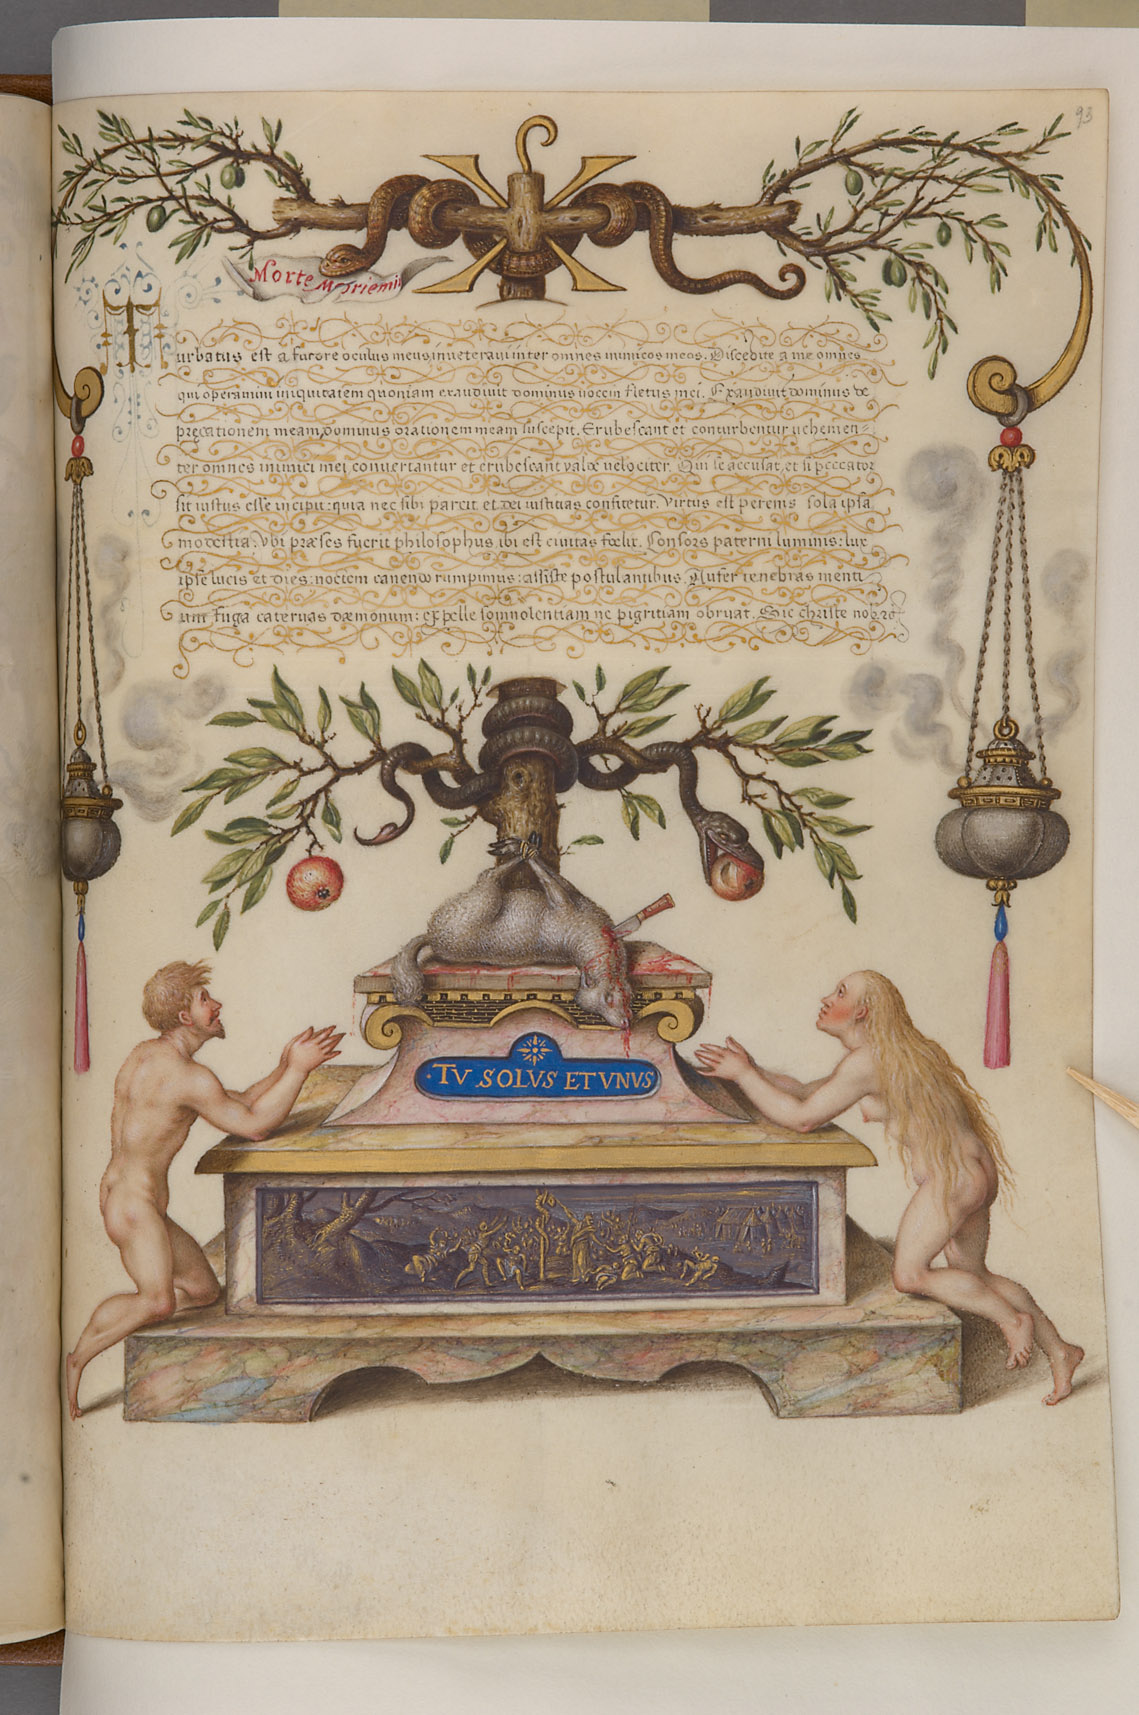 93
Morte Moriemini
Turbatus est a furore oculus meus, inveteravi inter omnes inimicos meos. Discedite a me omnes
qui operamini iniquitatem quoniam exaudivit dominus vocem fletus mei. Exaudivit dominus de
precationem meam, dominus orationem meam suscepit. Erubescant et conturbentur vehemen-
ter omnes inimici mei convertantur et erubescant valde velociter. Qui se accusat, et si peccator
sit iustus esse incipit: quia nec sibi parcit et dei iustitias confitetur. Virtus est perems sola ipsa
modestia. Vbi præses fuerit philosophus ibi est civitas fœlix. Consors paterni luminis: lux
ipse lucis et dies: noctem canendo rumpimus: assiste postulantibus. Aufer tenebras menti
um fuga catervas dæmonum: expelle somnolentiam ne pigritiam obruat. Sic christe nobis
TV SOLVS ET VNVS